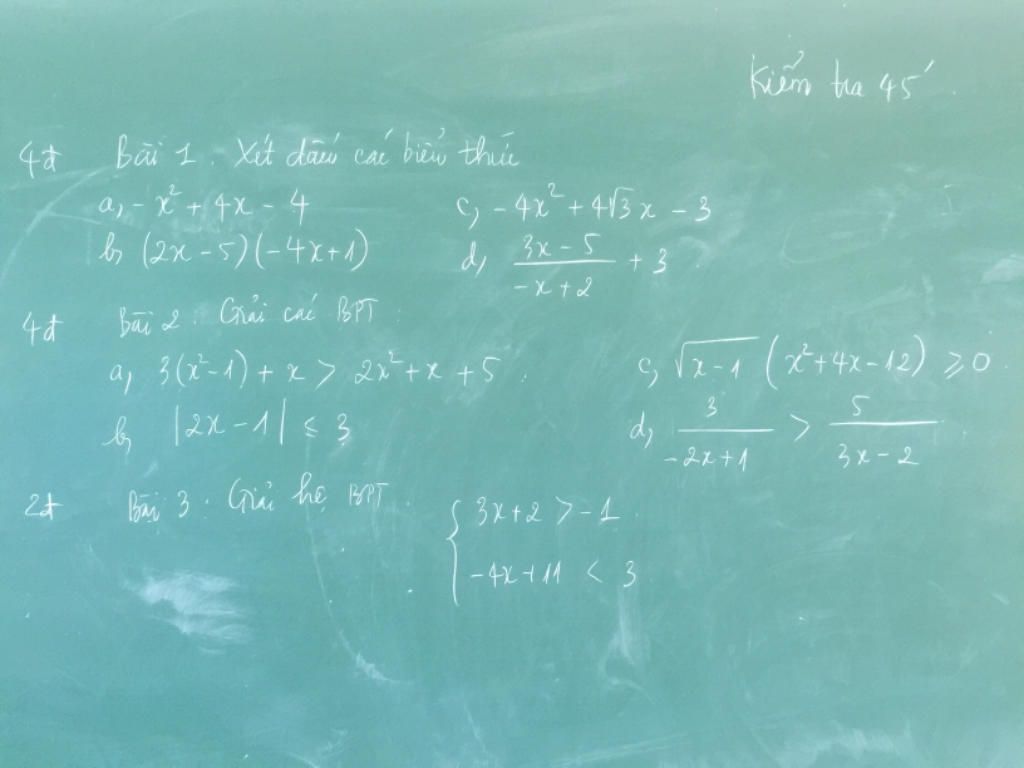 Kiểm tra 45'
4đ Bài 1. Xét dấu các biểu thức
a, -x² + 4x - 4 c, -4x² + 4√3x - 3
b, (2x - 5)(-4x+1) d, (3x - 5)/(-x+2) + 3
4đ Bài 2. Giải các BPT.
a, 3(x²-1) + x > 2x² + x + 5. c, √(x-1) (x²+4x-12) ≥ 0.
b, |2x - 1| ≤ 3 d, 3/(-2x+1) > 5/(3x-2).
2đ Bài 3. Giải hệ BPT. { 3x+2 > -1.
-4x+11 < 3